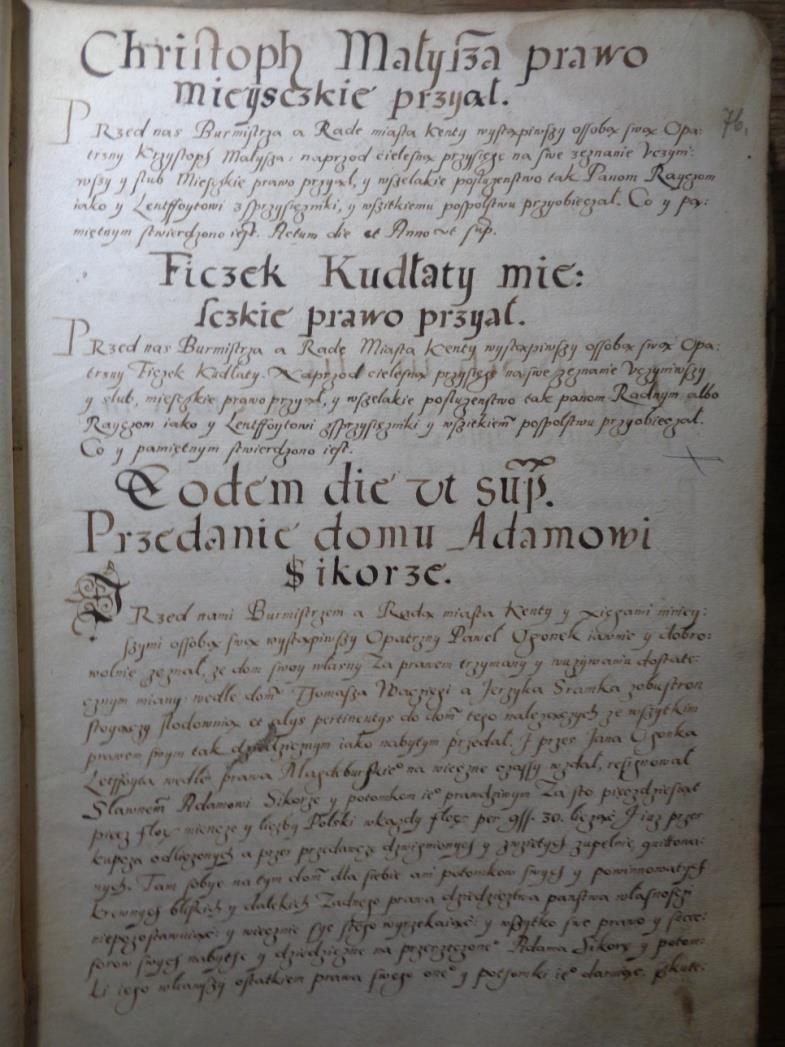 Christoph Małysza prawo
mieysczkie przyął.
76.
PRzed nas Burmistrza a Radę miasta Kenty wystąpiwszy ossobą swą Opa:
trzny Krzystoph Małysza: naprzod cielesną przysięgę na swe zeznanie Vczyni:
wszy y slub Mieszkie prawo przyął, y wszelakie posłuzenstwo tak Panom Rayczom
iako y Lentffoytowi z sprzysięzniki, y wszitkiemu pospolstwu przyobieczał. Co y pa:
miętnym stwierdzono iest. Actum die et Anno vt sup.
Ficzek Kudłaty mie:
sczkie prawo przyął.
PRzed nas Burmistrza a Radę Miasta Kenty wystąpiwszy ossobą swą Opa:
trzny Ficzek Kudłaty. Naprzod cielesną przysięgę na swe zeznanie Vczyniwszy
y slub, miesczkie prawo przyął, y wszelakie posłuzenstwo tak panom Radnym albo
Rayczom iako y Lentffoytowi zsprzysięzniki y wszitkiem pospolstwu przyobieczał.
Co y pamiętnym stwierdzono iest.
Eodem die vt sup.
Przedanie domu Adamowi
Sikorze.
PRzed nami Burmistrzem a Radą miasta Kenty y Xięgami
szymi ossobą swą wystąpiwszy Opatrzny Paweł Ogonek iawnie y dobro:
wolnie zeznał, ze dom swoy własny Za prawem trzymany y wuzywaniu dostate:
cznym miany: wedle dom Thomasza a Jerzyka Sramka zobustron
stoyączy slodownią et alys pertinentys do dom tego nalezączych ze wszytkim
prawem swym tak dziedzicznym iako nabytym przedał. J przes Jana Ogonka
Letffoyta wedle prawa Magdeburskie° na wieczne czassy wzdał, resignował
Sławnem Adamowi Sikorze y potomkom ie° prawdziwym Za sto pięczdziesiąt
pięcz flor monetę y liczby Polski wkazdy flor per gss. 30. licząc J iuz przez
kupcza odliczonych a przez przedawcę dzwignionych y zupełnie quittowa:
nych. Tam sobye na tym dom dla siebie ani potomkow swych y powinnowatych
krewnych bliskich y dalekich Zadnego prawa dziedzicztwa państwa własnosczi
niepozostawuiąc: y wiecznie sye stego wyrzekaiąc: y wszytko swe prawo y succe:
sorow swych nabythe y dziedziczne na przerzeczone° Adama Sikorę y potom:
ki iego wlawszy ostatkiem prawa swego one° y potomki ie° daruiąc. skute: